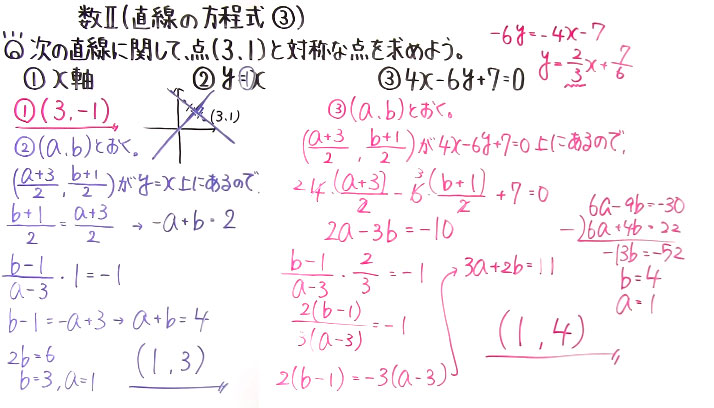 数Ⅱ(直線の方程式③)
次の直線に関して、点(3,1)と対称な点を求めよう。
① x軸 ② y=x ③ 4x-6y+7=0
-6y=-4x-7
y=2/3x+7/6
① (3,-1)
(3,1)
② (a,b)とおく。
(a+3/2, b+1/2)がy=x上にあるので、
b+1/2=a+3/2 → -a+b=2
b-1/a-3・1=-1
b-1=-a+3→a+b=4
2b=6
b=3,a=1
(1,3)
③ (a,b)とおく。
(a+3/2, b+1/2)が4x-6y+7=0上にあるので、
2 4・(a+3)/2-3 6・(b+1)/2+7=0
2a-3b=-10
b-1/a-3・2/3=-1
2(b-1)/3(a-3)=-1
2(b-1)=-3(a-3)
3a+2b=11
6a-9b=-30
-)6a+4b=22
-13b=-52
b=4
a=1
(1,4)